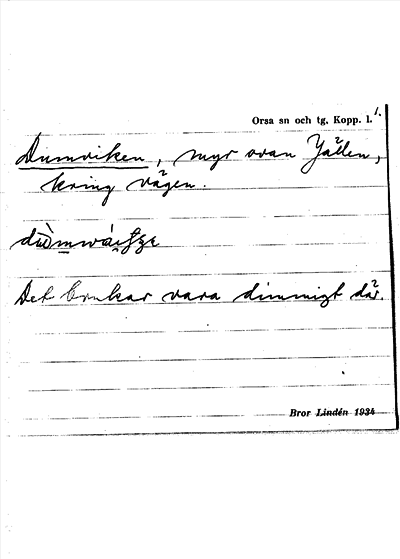 Orsa sn och tg. Kopp. l. 1.
Dumviken, myr ovan Jällen,
kring vägen.
Det brukar vara dimmigt där.
Bror Lindén 1934